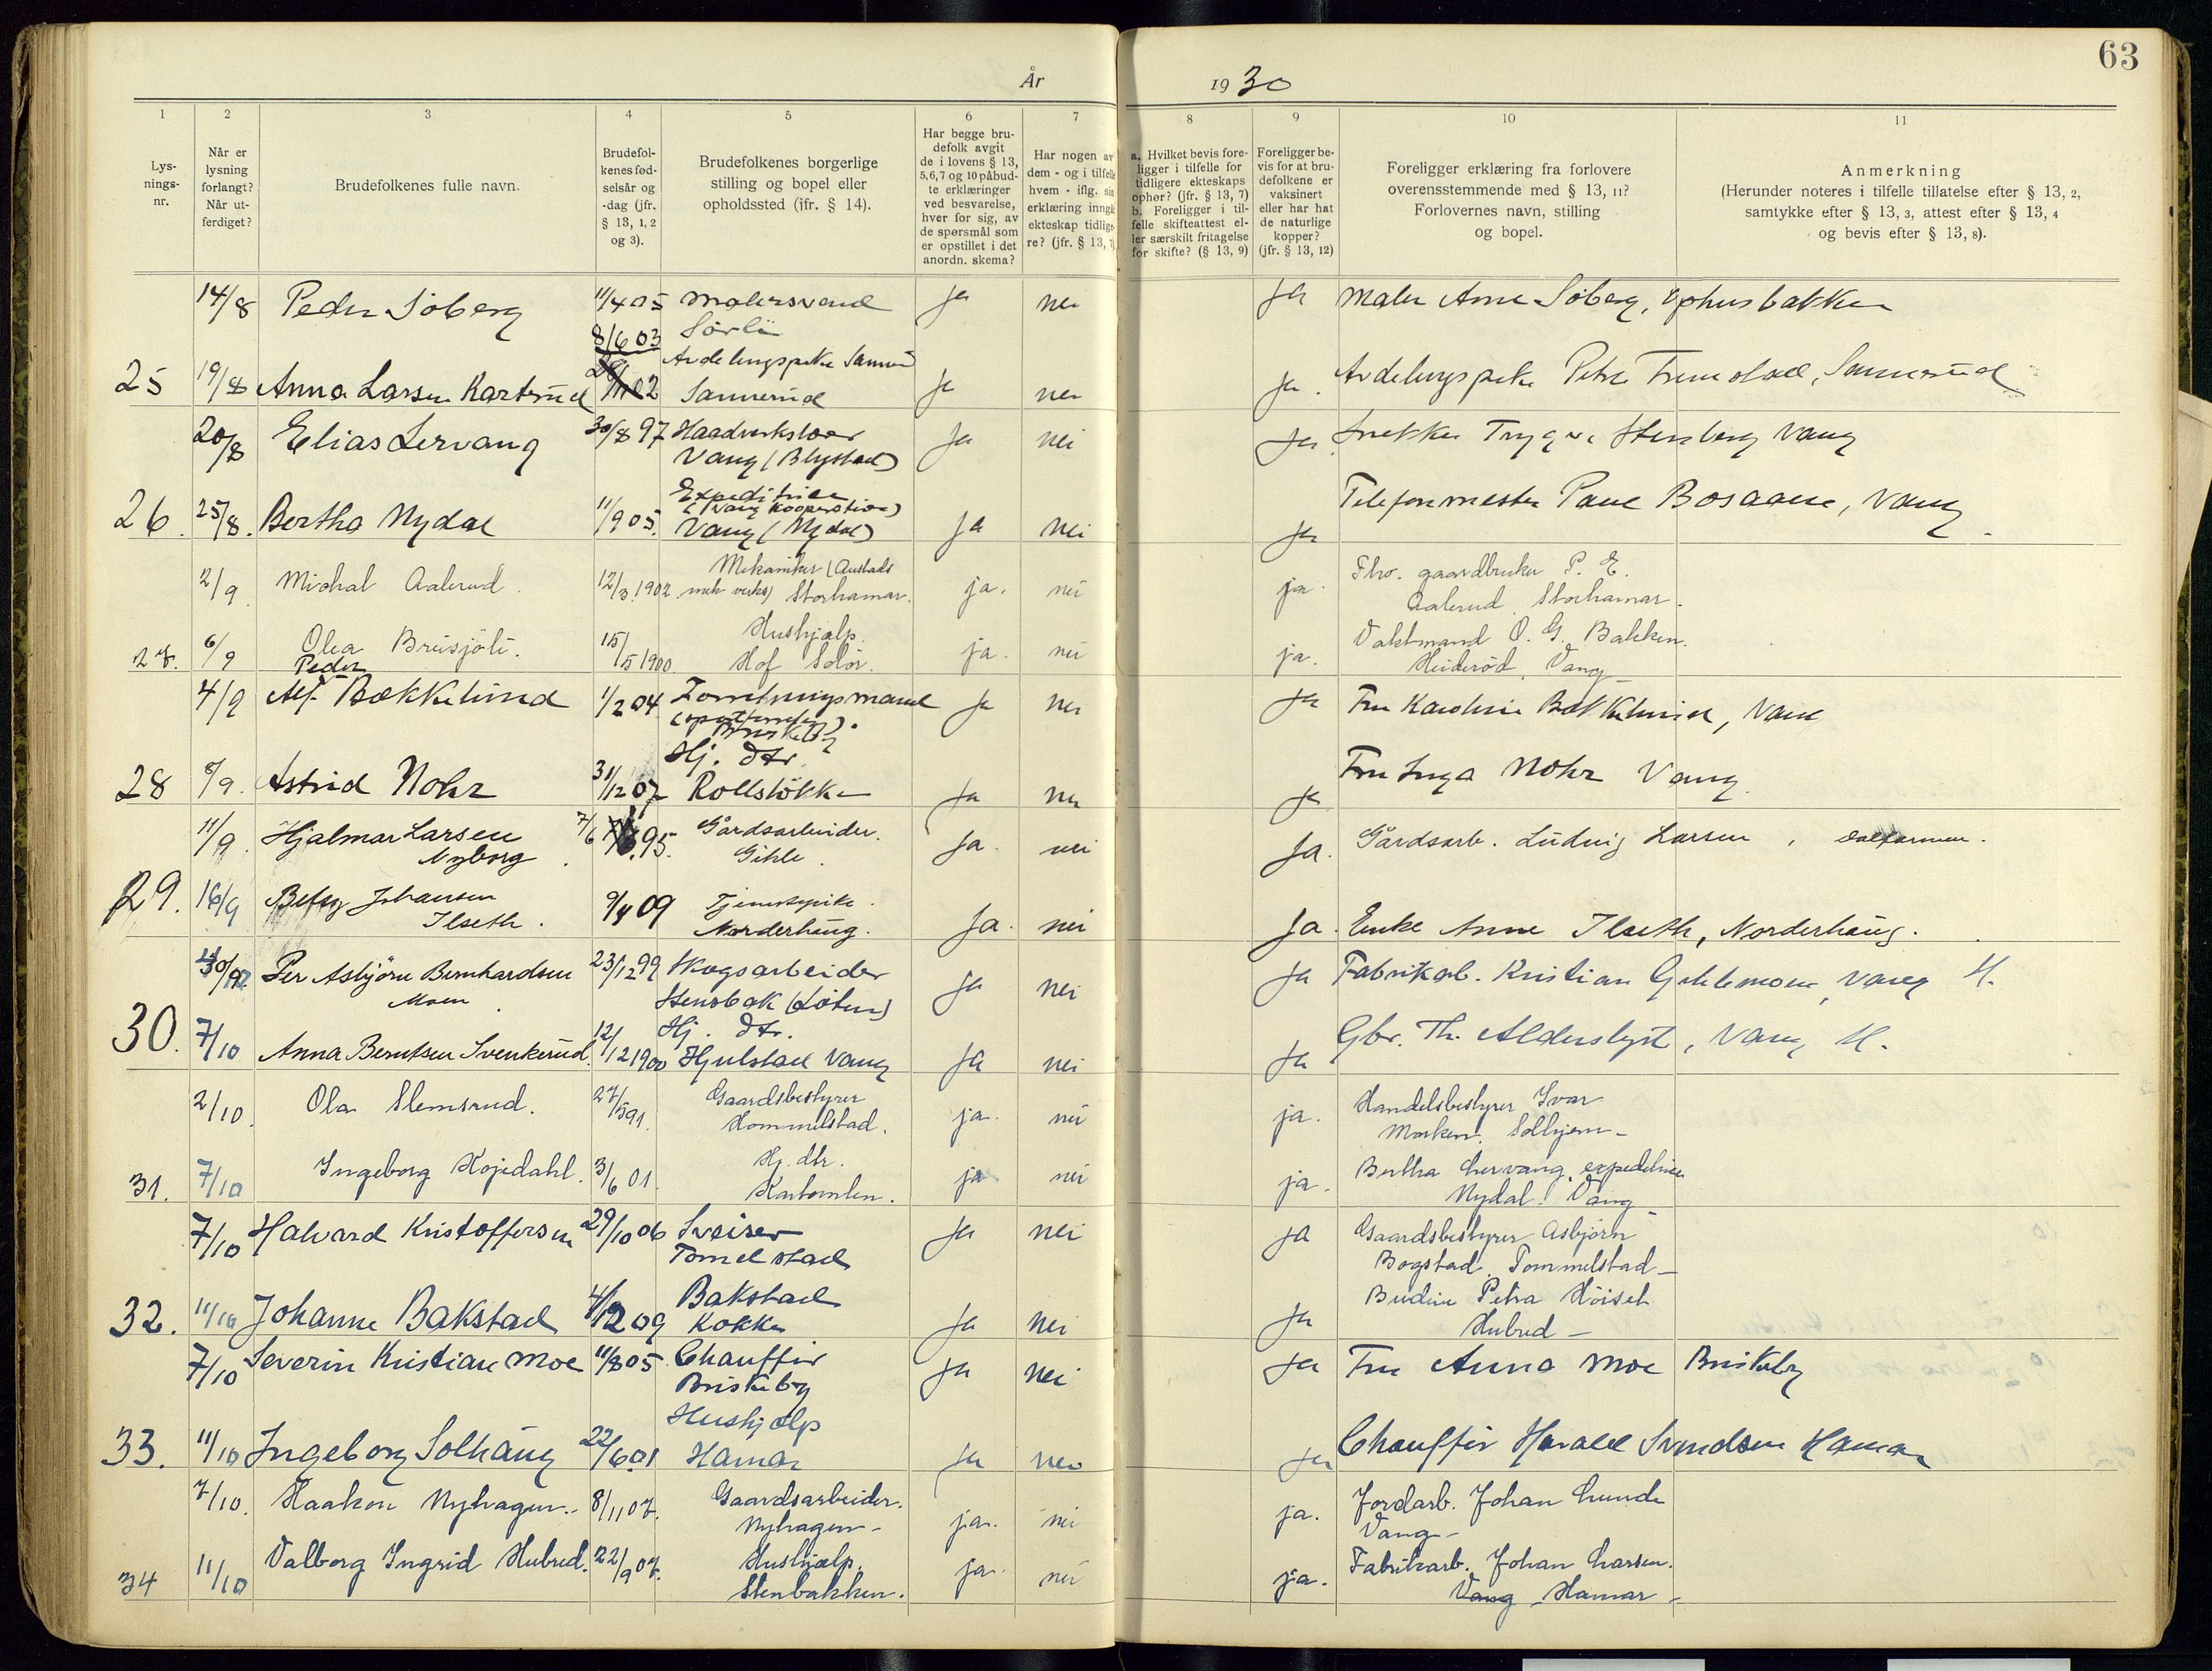 63
År 1930
1 2 3 4 5 6 7 8 9 10 11
Lys-
nings-
nr.
Når er
lysning
forlangt?
Når ut-
ferdiget?
Brudefolkenes fulle navn.
Brudefol-
kenes fød-
selsår og
-dag (jfr.
§ 13, 1, 2
og 3).
Brudefolkenes borgerlige
stilling og bopel eller
opholdssted (jfr. § 14).
Har begge bru-
defolk avgit
de i lovens § 13,
5,6,7 og 10 påbud-
te erklæringer
ved besvarelse,
hver for sig, av
de spørsmål som
er opstillet i det
anordn. skema?
Har nogen av
dem - og i tilfelle
hvem - iflg. sin
erklæring inngå
ekteskap tidlige-
re? (jfr. § 13, 7)
a. Hvilket bevis fore-
ligger i tilfelle for
tidligere ekteskaps
ophør? (jfr. § 13, 7)
b. Foreligger i til-
felle skifteattest el-
ler særskilt fritagelse
for skifte? (§ 13, 9)
Foreligger be-
vis for at bru-
defolkene er
vaksinert
eller har hat
de naturlige
kopper?
(jfr. § 13, 12)
Foreligger erklæring fra forlovere
overensstemmende med § 13, 11?
Forlovernes navn, stilling
og bopel.
Anmerkning
(Herunder noteres i tilfelle tillatelse efter § 13, 2,
samtykke efter § 13, 3, attest efter § 13, 4
og bevis efter § 13, 8).
14/8 Peder Söberg 11/4 05 malersvend ja nei ja Maler Arne Söberg,
8/6 03 Sörli
Avdelingspike
25 19/8 Anna Larsen Karterud 02 Sannerud ja nei ja. Avdelingspike Petra , Sannerud
20/8 Elias Lervang 30/8 97 Vang (Blystad) ja nei ja Snekker Trygve Stensberg Vang
Expeditrice
(Vang Kooperation)
26. 25/8. Bertha Nydal 11/9 05. Vang (Nydal) ja nei ja Telefonmester Paul Bosaaen, Vang
2/9 Michal Aalerud. 12/3 1902. Mekaniker (Austads
mek verks) Storhamar. ja. nei ja. Fhv. gaardbruker P. E.
Aalerud. Storhamar.
27. 6/9 Olea Brusjöli. 15/5 1900. Hushjælp.
Hof Solör. ja. nei ja. Vaktmand O. G. Bakken.
Heideröd, Vang
Peder
4/9 Alf Bækkelund 1/2 04 Forretningsmand ja nei ja Fru Karoline Bækkelund, Vang
Hj. dtr.
28 8/9. Astrid Nohr 31/12 07 Rollslökka ja nei ja Fru Inga Nohr Vang
11/9 Hjalmar Larsen 7/6 95. Gårdsarbeider. ja. nei ja. Gårdsarb. Ludvig Larsen,
Nyborg. Gihle.
29. 16/9 Betsy Johansen 9/4 09 Tjenestepike.
Ilseth. Norderhaug. ja. nei ja. Enke Anne Ilseth, Norderhaug.
Per Asbjörn Bernhardsen 23/12 99 Skogsarbeider ja nei ja Fabrikarb. Kristian Gihlemoen, Vang H.
Moen Stensbak (Löten)
30. 7/10 Anna Berntsen Svenkerud. 12/12 1900 Hj. dtr.
Hjulstad Vang ja nei ja Gbr. Th. Alderslyst, Vang H.
2/10. Ola Slemsrud. 27/5 91. Gaardsbestyrer
Hommelstad. ja. nei ja. Handelsbestyrer Ivar
Morken. Solhjem
31. 7/10 Ingeborg Kojedahl. 3/6 01. Hj. dtr.
Kartomten. ja nei ja. Bertha Lervang, expeditrice
Nydal. Vang
7/10 Halvard Kristoffersen 29/10 06 Sveiser
Tomelstad ja nei ja Gaardsbestyrer Asbjörn
Bogstad. Tommelstad
32. 11/10 Johanne Bakstad 4/12 09 Bakstad
Kokke ja nei ja Budeie Petra Höiset
Hubred
7/10 Severin Kristian Moe 11/8 05. Chaufför
Briskeby ja nei ja Fru Anna Moe Briskeby
Hushjælp
33. 11/10 Ingeborg Solhaug 22/6 01 Hamar ja nei ja Chaufför Harald Svendsen Hamar
7/10. Haakon Nyhagen. 8/11 07. Gaardsarbeider.
Nyhagen ja. nei ja. Jordarb. Johan Lunde
Vang
34 11/10 Valborg Ingrid Hubred. 22/9 07. Hushjælp.
Stenbakken. ja. nei ja. Fabrikarb. Johan Larsen.
Vang Hamar